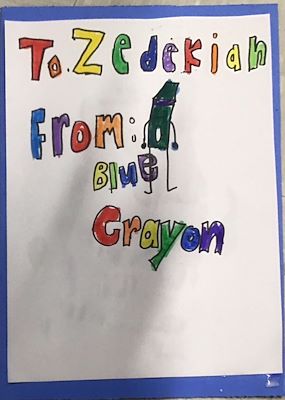 To. Zedekiah
From:
Blue
Crayon